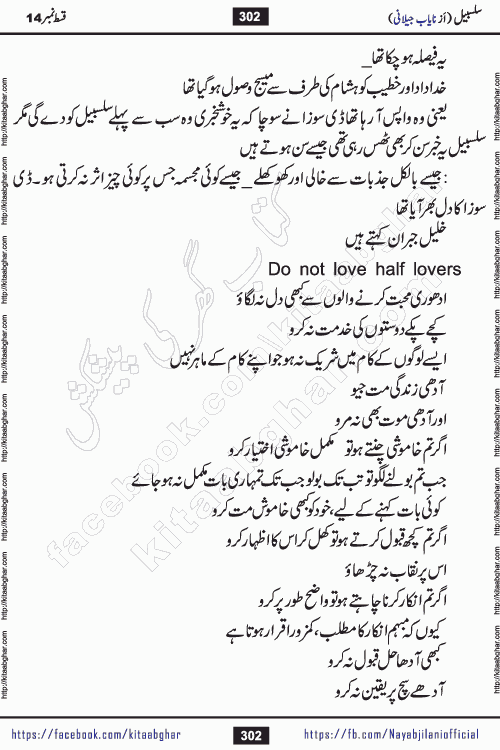 سلسبیل (از نایاب جیلانی)
302
قسط نمبر 14
یہ فیصلہ ہو چکا تھا_
خداداد اور خطیب کو ہشام کی طرف سے میسج وصول ہو گیا تھا
یعنی وہ واپس آ رہا تھا ڈی سوزا نے سوچا کہ یہ خوشخبری وہ سب سے پہلے سلسبیل کو دے گی مگر
سلسبیل یہ خبر سن کر بھی ٹھس رہی تھی جیسے سن ہوتے ہیں
: جیسے بالکل جذبات سے خالی اور کھوکھلے _ جیسے کوئی مجسمہ جس پر کوئی چیز اثر نہ کرتی ہو۔ ڈی
سوزا کا دل بھر آیا تھا
خلیل جبران کہتے ہیں
Do not love half lovers
ادھوری محبت کرنے والوں سے کبھی دل نہ لگاؤ
کچے پکے دوستوں کی خدمت نہ کرو
ایسے لوگوں کے کام میں شریک نہ ہو جو اپنے کام کے ماہر نہیں
آدھی زندگی مت جیو
اور آدھی موت بھی نہ مرو
اگر تم خاموشی چنتے ہو تو مکمل خاموشی اختیار کرو
جب تم بولنے لگو تو تب تک بولو جب تک تمہاری بات مکمل نہ ہو جائے
کوئی بات کہنے کے لیے، خود کو کبھی خاموش مت کرو
اگر تم کچھ قبول کرتے ہو تو کھل کر اس کا اظہار کرو
اس پر نقاب نہ چڑھاؤ
اگر تم انکار کرنا چاہتے ہو تو واضح طور پر کرو
کیوں کہ مبہم انکار کا مطلب، کمزور اقرار ہوتا ہے
کبھی آدھا حل قبول نہ کرو
آدھے سچ پر یقین نہ کرو
کتاب گھر کی پیشکش
facebook.com/kitaabghar
kitaabghar.com
http://kitaabghar.com
https://facebook.com/kitaabghar
302
https://fb.com/Nayabjilaniofficial